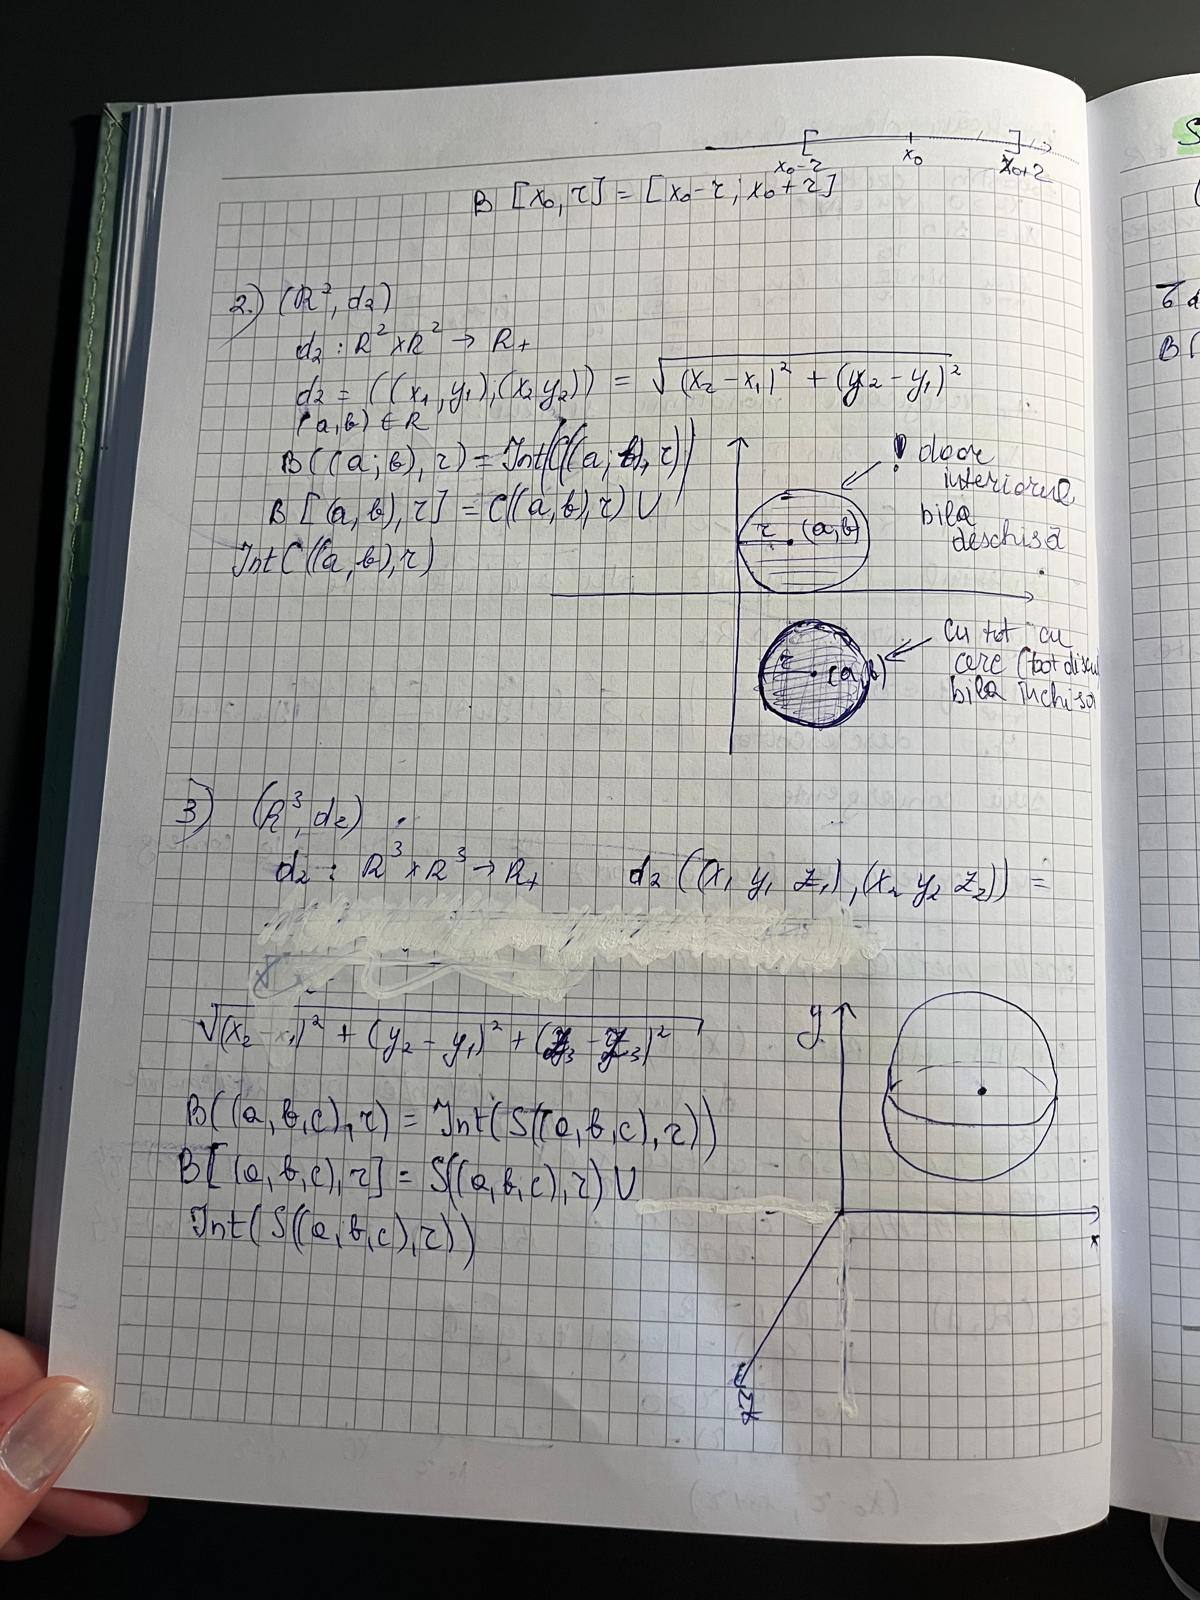 x₀-r x₀ x₀+r
B [x₀, r] = [x₀-r; x₀+r]
2.) (R², d₂)
d₂ : R² × R² → R₊
d₂ = ((x₁, y₁), (x₂ y₂)) = √(x₂ - x₁)² + (y₂ - y₁)²
(a, b) ∈ R
B((a; b), r) = Int(C((a; b), r))
B[(a, b), r] = C((a, b), r) ∪
Int C((a, b), r)
! doar
interiorul
bila
deschisă
r (a, b)
cu tot cu
cerc (tot discul
bila închisă
r (a, b)
3) (R³, d₂)
d₂ : R³ × R³ → R₊ d₂ ((x₁ y₁ z₁), (x₂ y₂ z₂)) =
√(x₂ - x₁)² + (y₂ - y₁)² + (z₃ - z₃)²
y
B((a, b, c), r) = Int(S((a, b, c), r))
B[(a, b, c), r] = S((a, b, c), r) ∪
Int(S((a, b, c), r))
x
z
S
B[